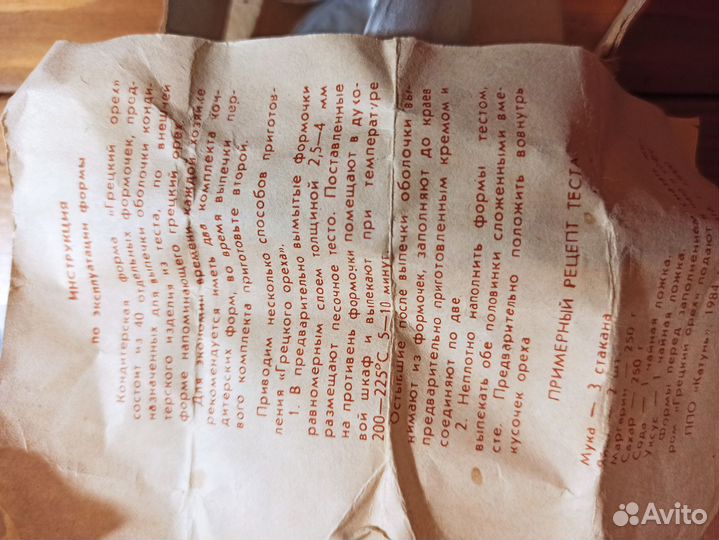 ИНСТРУКЦИЯ
по эксплуатации формы
Кондитерская форма «Грецкий орех»
состоит из 40 отдельных формочек, пред-
назначенных для выпечки оболочки конди-
терского изделия из теста, по внешней
форме напоминающего грецкий орех.
Для экономии времени каждой хозяйке
рекомендуется иметь два комплекта кон-
дитерских форм, во время выпечки пер-
вого комплекта приготовьте второй.
Приводим несколько способов приготов-
ления «Грецкого ореха».
1. В предварительно вымытые формочки
равномерным слоем толщиной 2,5—4 мм
размещают песочное тесто. Поставленные
на противень формочки помещают в духо-
вой шкаф и выпекают при температуре
200—225°С 5—10 минут.
Остывшие после выпечки оболочки вы-
нимают из формочек, заполняют до краев
предварительно приготовленным кремом и
соединяют по две.
2. Неплотно наполнить формы тестом,
выпекать обе половинки сложенными вме-
сте. Предварительно положить вовнутрь
кусочек ореха
ПРИМЕРНЫЙ РЕЦЕПТ ТЕСТА
Мука — 3 стакана
2 шт.
Маргарин — 250 г
Сахар — 250 г
Сода — 1 чайная ложка.
Уксус — 1 чайная ложка.
Формы перед заполнением
ром «Грецкий орех» подают
ППО «Катунь» 198
Avito